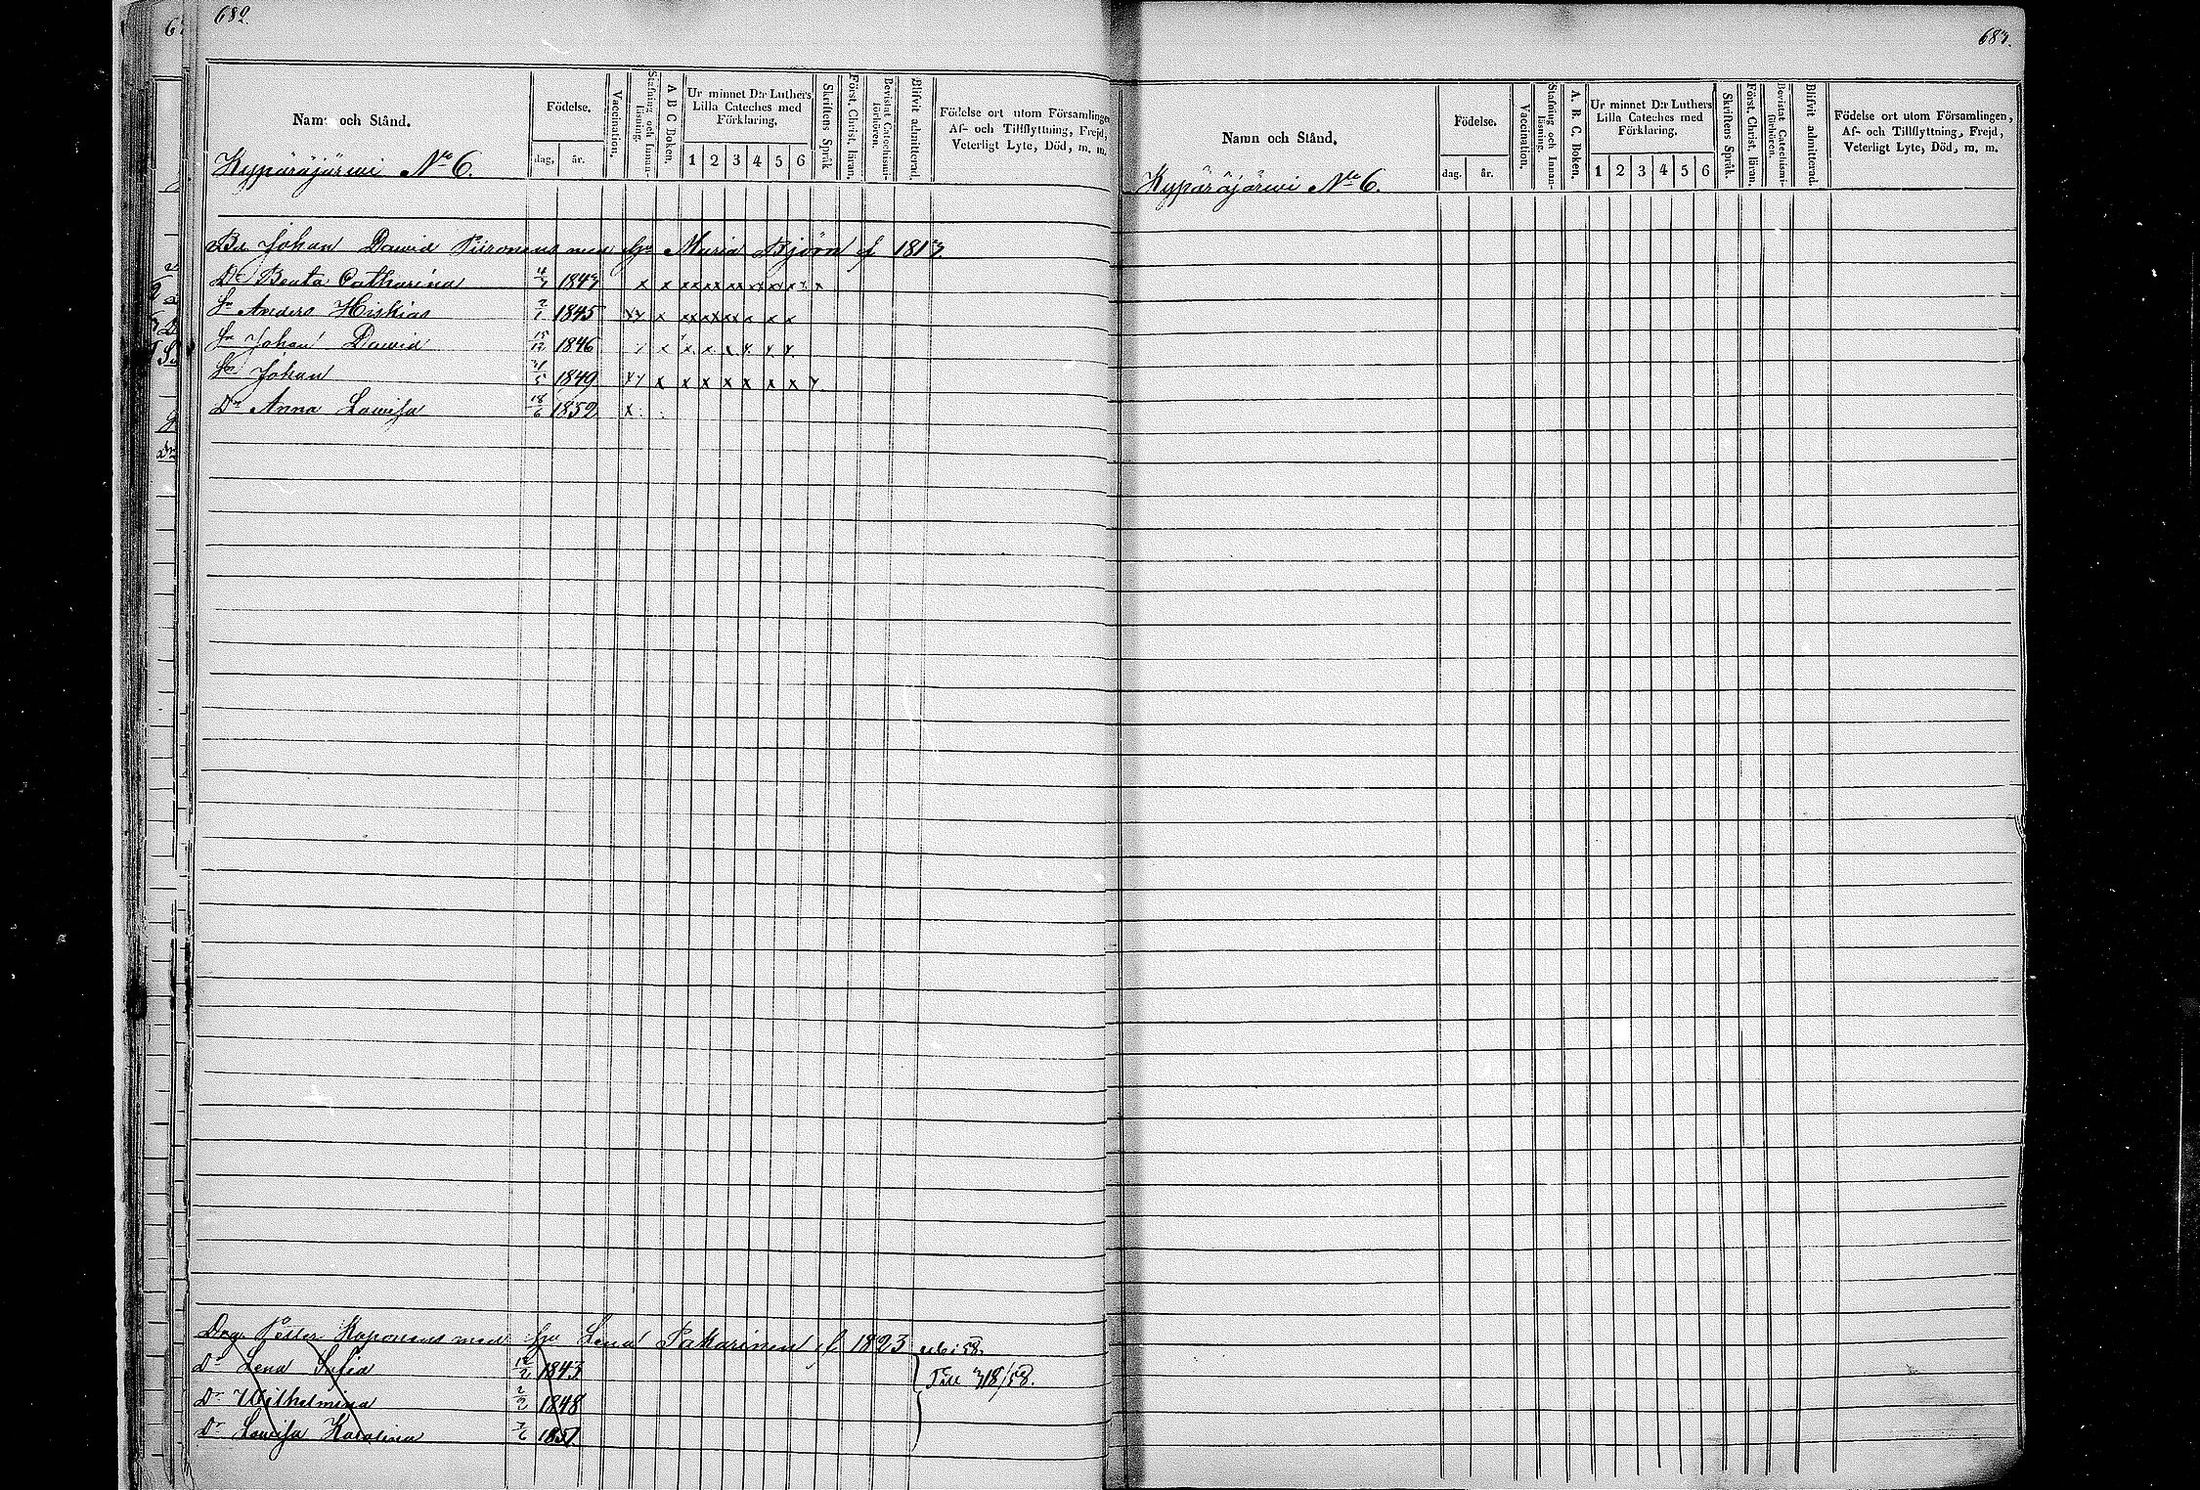 682.
Namn och Stånd.
Födelse.
dag, år.
Vaccination.
Stafning och Innan-
läsning.
A B C Boken.
Ur minnet D:r Luthers
Lilla Cateches med
Förklaring.
1 2 3 4 5 6
Skriftens Språk
Först. Christ. läran.
Bevistat Catechismi-
förhören.
Blifvit admitterad.
Födelse ort utom Församlingen
Af- och Tillflyttning, Frejd,
Veterligt Lyte, Död, m. m.
Kypäräjärwi No 6.
Johan Dawid Piironens med Maria Björn f 1813
Dr Beata Catharina 4 1843 x x xx xx xx xx xx x x x
Sn Anders Hiskias 2/1 1845 xx x xx xx xx x x x
Sn Johan Dawid 15/12 1846 x x x x x x x x
Sn Johan 31/5 1849 xx x x x x x x x x
Dr Anna Lowisa 18/6 1852 x
Petter Koponens med Lena Pakarinen f. 1823
Dr Lena Sofia 1843
Till 718/58.
Dr Wilhelmina 2/2 1848
Dr Lowisa Karolina 7/6 1851
683.
Namn och Stånd,
Födelse.
dag. år.
Vaccination.
Stafning och Innan-
läsning.
A. B. C. Boken.
Ur minnet D:r Luthers
Lilla Cateches med
Förklaring.
1 2 3 4 5 6
Skriftens Språk.
Först. Christ. läran.
Bevistat Catechismi-
förhören.
Blifvit admitterad.
Födelse ort utom Församlingen,
Af- och Tillflyttning, Frejd,
Veterligt Lyte, Död, m. m.
Kypäräjärwi No 6.